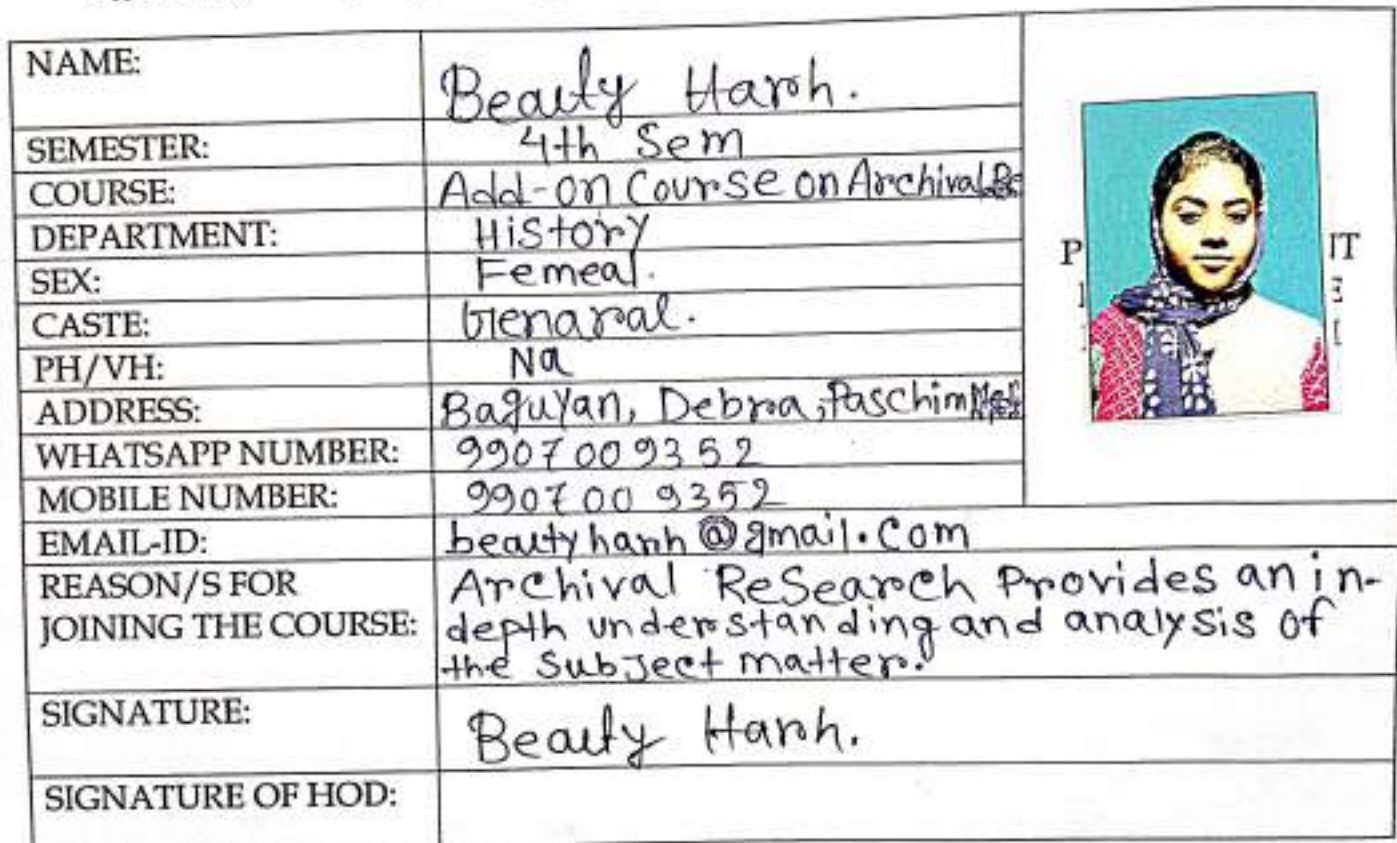 NAME: Beauty Harh.
SEMESTER: 4th Sem
COURSE: Add-on Course on Archival
DEPARTMENT: History
SEX: Femeal.
CASTE: Genaral.
PH/VH: Na
ADDRESS: Baguyan, Debra, Paschim
WHATSAPP NUMBER: 9907009352
MOBILE NUMBER: 9907009352
EMAIL-ID: beautyharh@gmail.com
REASON/S FOR JOINING THE COURSE:
Archival ReSearch Provides an in-
depth understanding and analysis of
the Subject matter.
SIGNATURE: Beauty Harh.
SIGNATURE OF HOD: